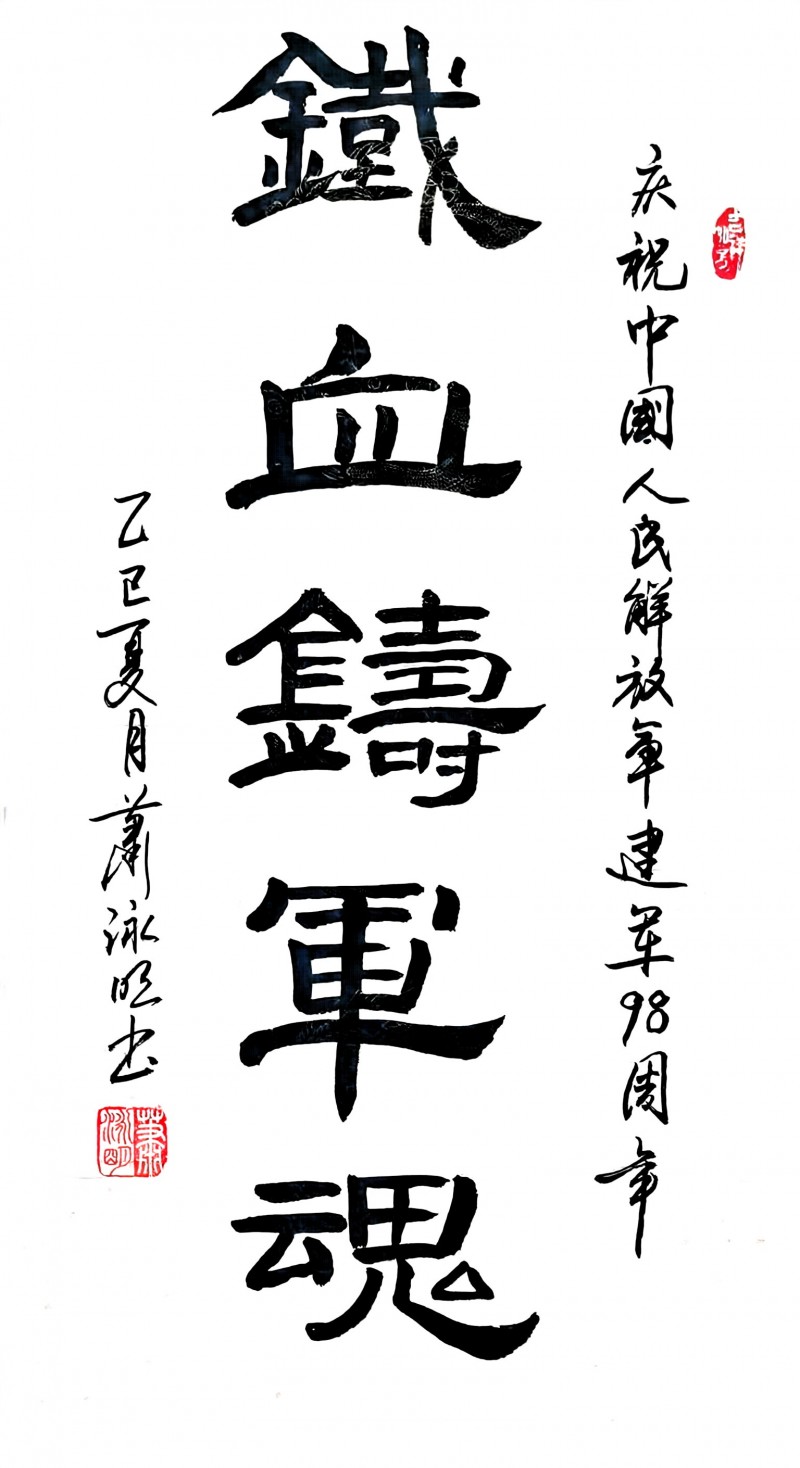 庆祝中國人民解放軍建军98周年
鐵血鑄軍魂
乙巳夏月蕭泳明书
蕭泳明